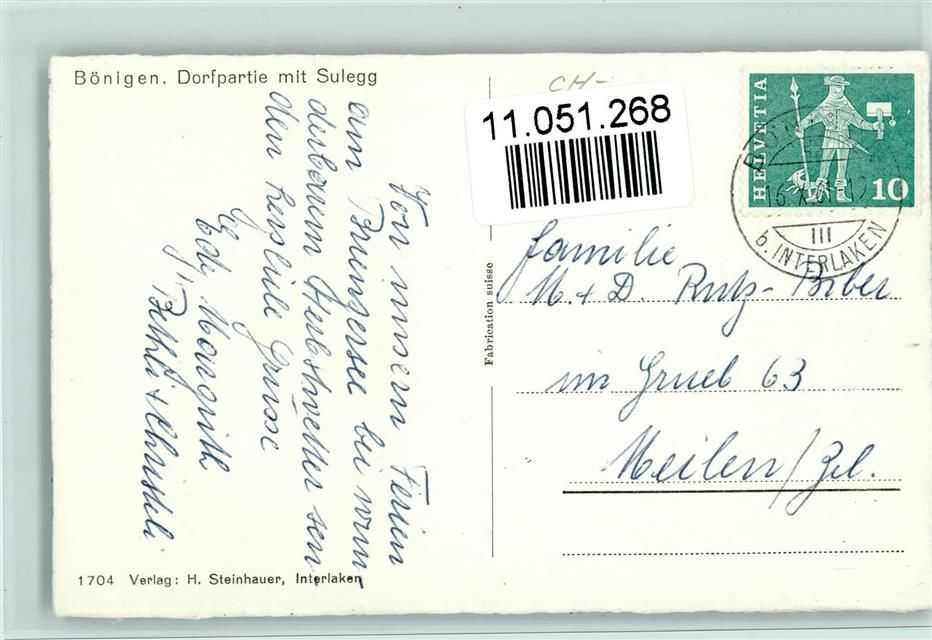 Bönigen. Dorfpartie mit Sulegg
CH-
11.051.268
HELVETIA
10
III
b. INTERLAKEN
Von unsern Ferien
am Brienzersee bei wun
derbarem Herbstwetter sen
den herzliche Grüsse
Margrith
Bethli + Christeli
Fabrication suisse
Familie
M. + D. Rutz-Biber
im Grueb 63
Meilen/Zch.
1704 Verlag: H. Steinhauer, Interlaken